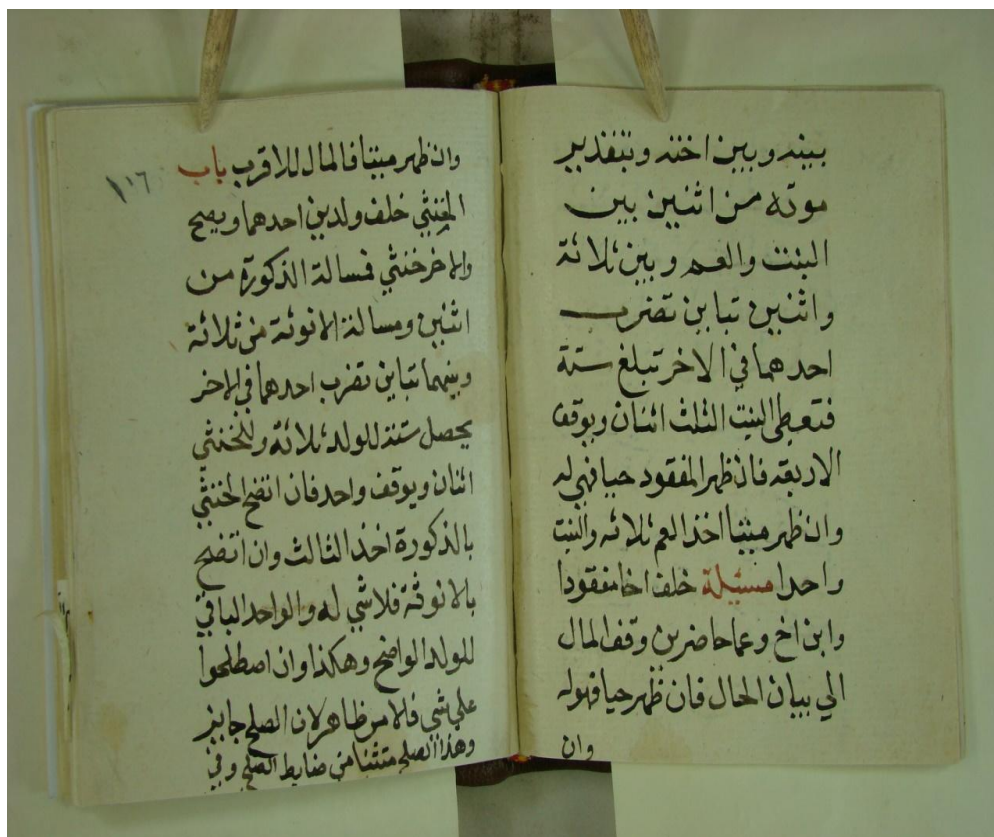 بينه وبين اخته وبتقدير
موته من اثنين بين
البنت والعم وبين ثلاثة
واثنين تباين تضرب
احدهما في الاخر تبلغ ستة
فتعطى البنت الثلث اثنان ويوقف
الاربعه فان ظهر المفقود حيا فهي له
وان ظهر ميتا اخذ العم ثلاثه والبنت
واحدا مسئيلة خلف اخا مفقودا
وابن اخ وعما حاضرين وقف المال
الي بيان الحال فان ظهر حيا فهوله
وان
١١٦
وان ظهر ميتا فالمال للاقرب باب
الخنثي خلف ولدين احدهما ويصح
والاخر خنثي فمسالة الذكورة من
اثنين ومسالة الانوثة من ثلاثة
وبينهما تباين تضرب احدهما في الاخر
يحصل ستة للولد ثلاثة وللخنثي
اثنان ويوقف واحد فان اتضح الخنثي
بالذكورة اخذ الثالث وان اتضح
بالانوثة فلا شي له والواحد الباقي
للولد الواضح وهكذا وان اصطلحوا
علي شي فالامر ظاهر لان الصلح جايز
وهذا الصلح متثنا من ضابط الصلح وفي